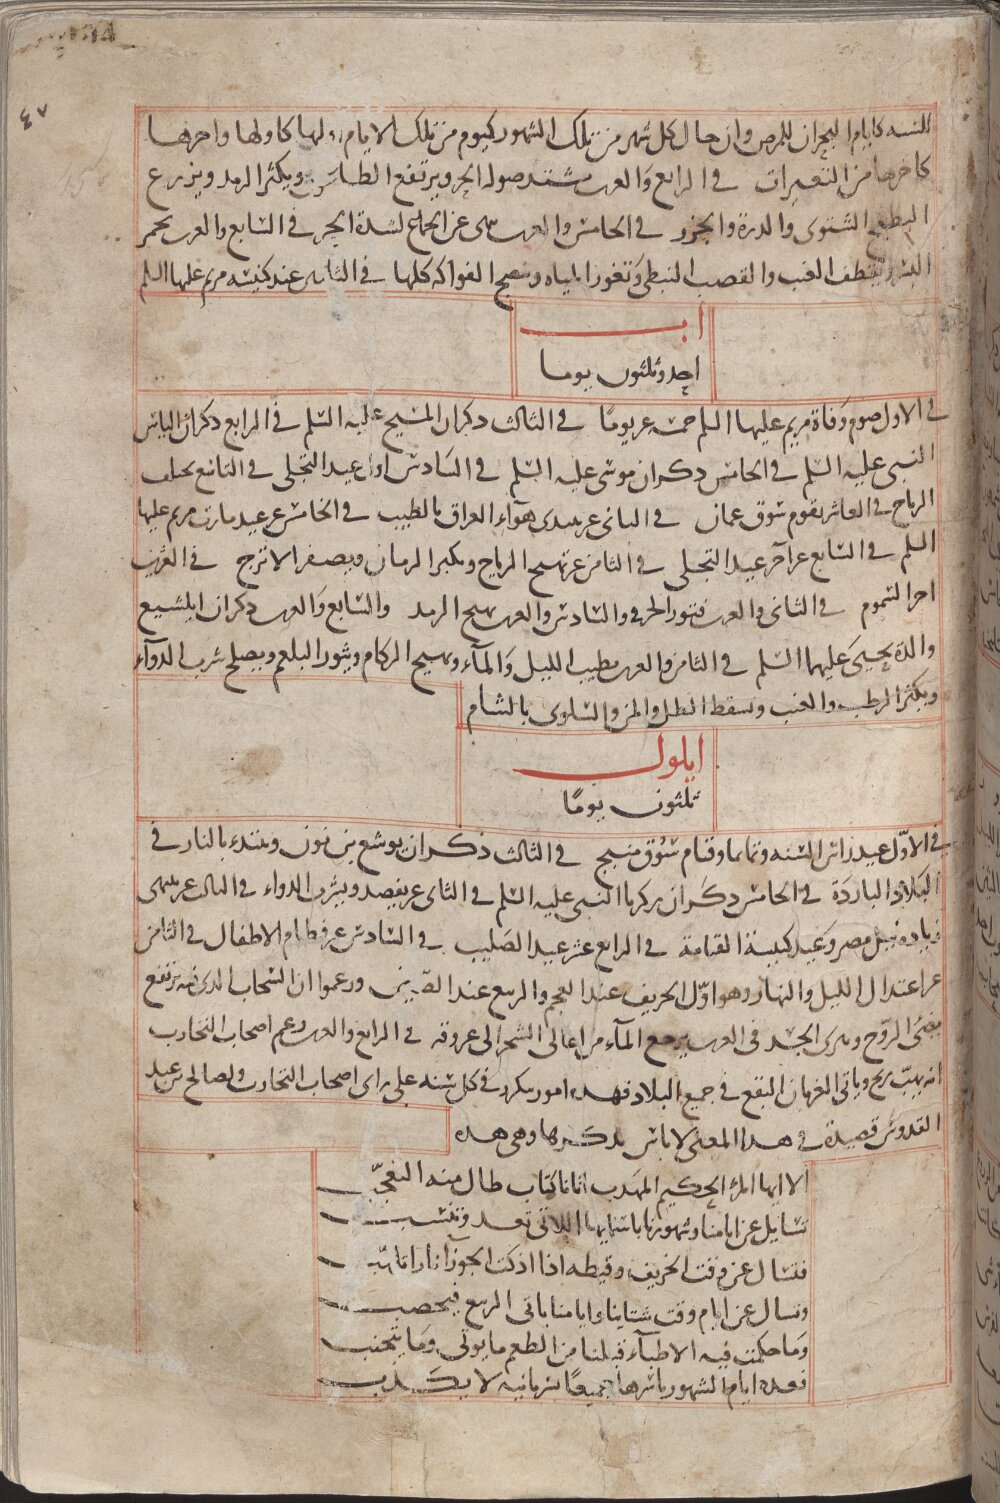 ٤٧
للسنه كايام البحران للمرض وان حال كل شهر من تلك الشهور كيوم من تلك الايام اولها كاولها واخرها
كاخرها من التغيرات في الرابع والعسرين مشتد صولة الحر ويرتفع الطاعون ويكثر الرمد ويزرع
البطيخ الشتوى والدرة والجزر في الخامس والعسرين ينهى عن الجماع لشدة الحر في السابع والعسرين يحمر
البسر ويقطف العنب والقصب النبطى وتغور المياه وينضج الفواكه كلها في الثامن عند كنيسه مريم عليها السلم
اب
احد وثلثون يوما
في الاول صوم وفاة مريم عليها السلم خمسه عشر يومًا في الثالث ذكران المسيح عليه السلم في الرابع ذكران الياس
النبي عليه السلم في الخامس ذكران موسى عليه السلم في السادس اول عيد التجلى في التاسع يختلف
الرياح في العاشر يقوم سوق عمان في الثانى عشر يبتدى هوآء العراق بالطيب في الخامس عشر عيد مارت مريم عليها
السلم في السابع عشر آخر عيد التجلى في الثامن عشر تهيج الرياح ويكثر الرمان ويصفر الاترج في العشرين
اخر السموم في الثانى والعسرين فتور الحر في والسادس والعسرين يهيج الرمد والسابع والعسرين ذكران ايلشبع
والدة يحيى عليهما السلم في الثامن والعسرين يطيب الليل والمآء ويهيج الزكام ويثور البلغم ويصلح شرب الدوآء
ويكثر الرطب والعنب ويسقط الطل والمن والسلوى بالشام
ايلول
ثلثون يومًا
في الاوّل عيد راس السنه وتمامها وقيام سوق منبج في الثالث ذكران يوشع بن نون ويبتدء بالنار في
البلاد الباردة في الخامس ذكران زكريا النبي عليه السلم في الثاني عشر يفصد ويشرب الدواء في الثالث عشر ينتهى
زيادة نيل مصر وعيد كنيسة القيامة في الرابع عشر عيد الصليب في السادس عشر فطام الاطفال في الثامن
عشر اعتدال الليل والنهار وهو اوّل الخريف عند العجم والربيع عند الصّين وزعموا ان السحاب الذى فيه يرتفع
يضنى الروح ويبرى الجسد في العسرين يرجع المآء من اعالى الشجر الى عروقه في الرابع والعسرين زعم اصحاب التجارب
انه يهبّ ريح وياتى الغربان البقع في جميع البلاد فهذه امور يتكرر في كل سنه على راى اصحاب التجارب ولصالح بن عبد
القدوس قصيدة في هذا المعنى لا باس بذكرها وهى هذه
الا ايها المرء الحكيم المهذب اتانا كتاب طال منه التعجّب
تسايل عن ايامنا وشهورنا باسمايها اللاتى تعد وتنسب
فتسال عن وقت الخريف وقيظه اذا اذكت الجوزآ نارا تلهّب
وتسال عن ايام وقت شتاينا وايامنا ياتى الربيع فيخصب
وما حكمت فيه الاطبآء قبلنا من الطعم ما يوتى وما يتجنب
فعده ايام الشهور باسرها جميعًا سريانيه لا يكذب